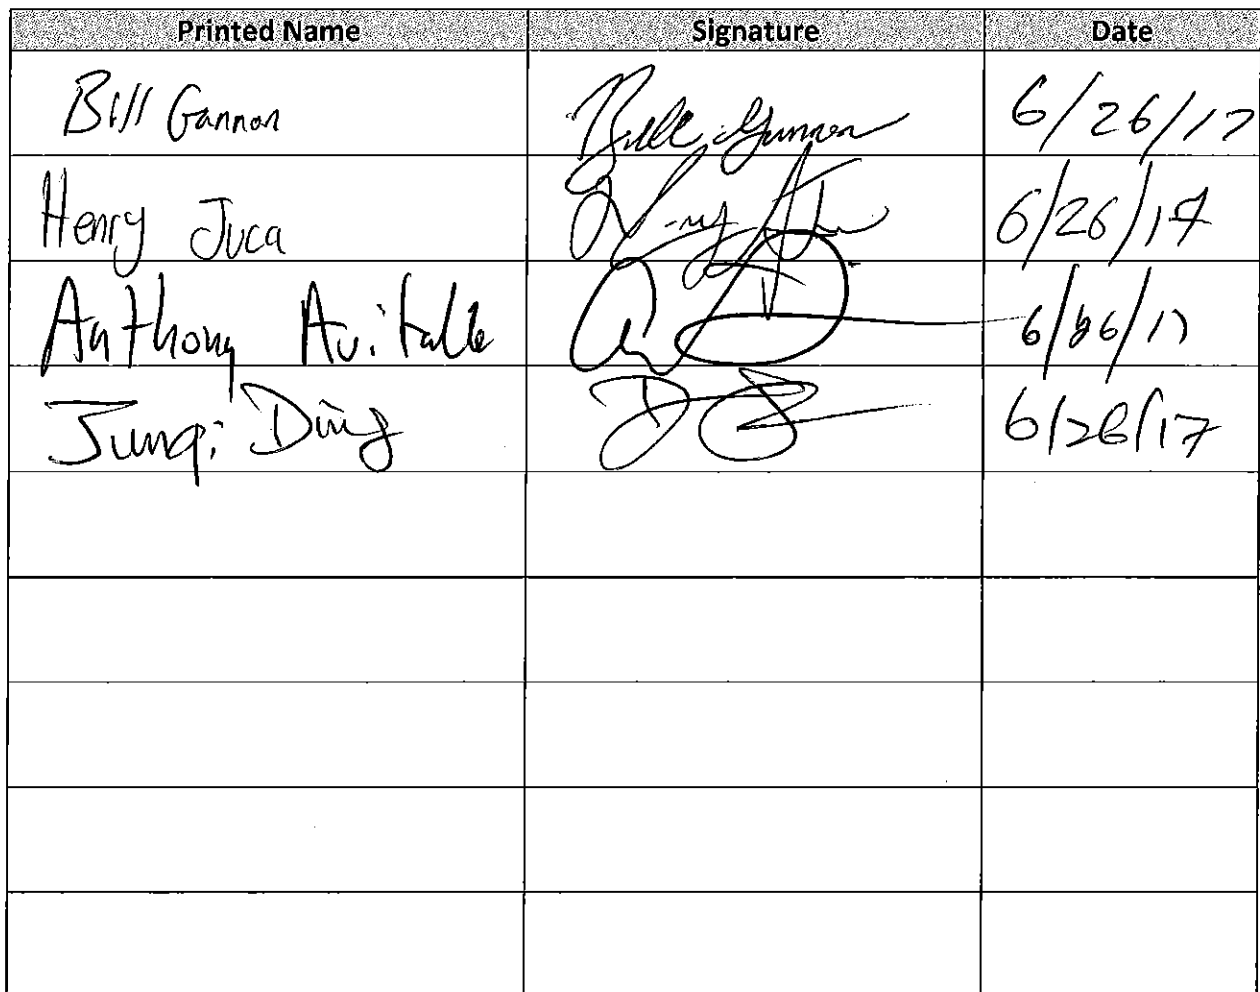 Printed Name Signature Date
Bill Gannon Bill Gannon 6/26/17
Henry Juca 6/26/17
Anthony Avitalle 6/26/17
Junqi Ding 6/26/17